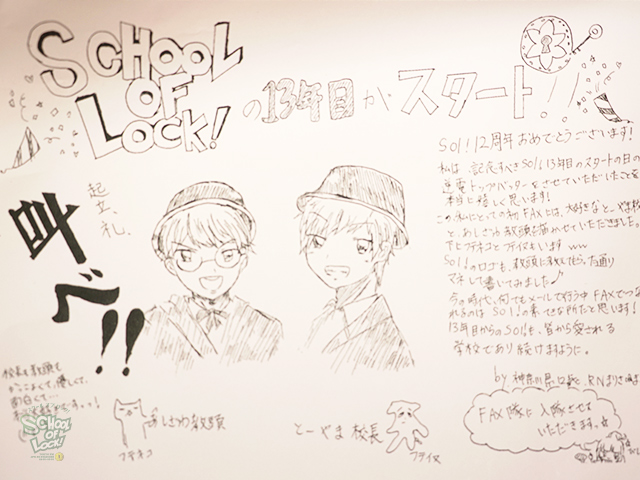 SCHOOL
OF
LOCK!
の13年目がスタート!!
SOL!12周年おめでとうございます!
私は、記念すべきSOL!13年目のスタートの日の
逆電トップバッターをさせていただいたことを
本当に嬉しく思います!
この私にとっての初FAXには、大好きなとーやま校長
と、あしざわ教頭を描かせていただきました。
下にフテネコとフティヌもいます ww
SOL!のロゴも、教頭に教えてもらった通り
マネして書いてみました♪
今の時代、何でもメールで行う中 FAXでつな
れるのはSOL!の幸せな所だと思います!
13年目からのSOL!も、皆から愛される
学校であり続けますように。
by 神奈川県 RN
起立、礼、
叫べ!!
校長も教頭も
かっこよくて、優しくて、
面白くて
SCHOOL
OF
LOCK!
フテネコ
あしざわ教頭
とーやま校長
フティヌ
FAX隊に入隊させて
いただきまっ☆